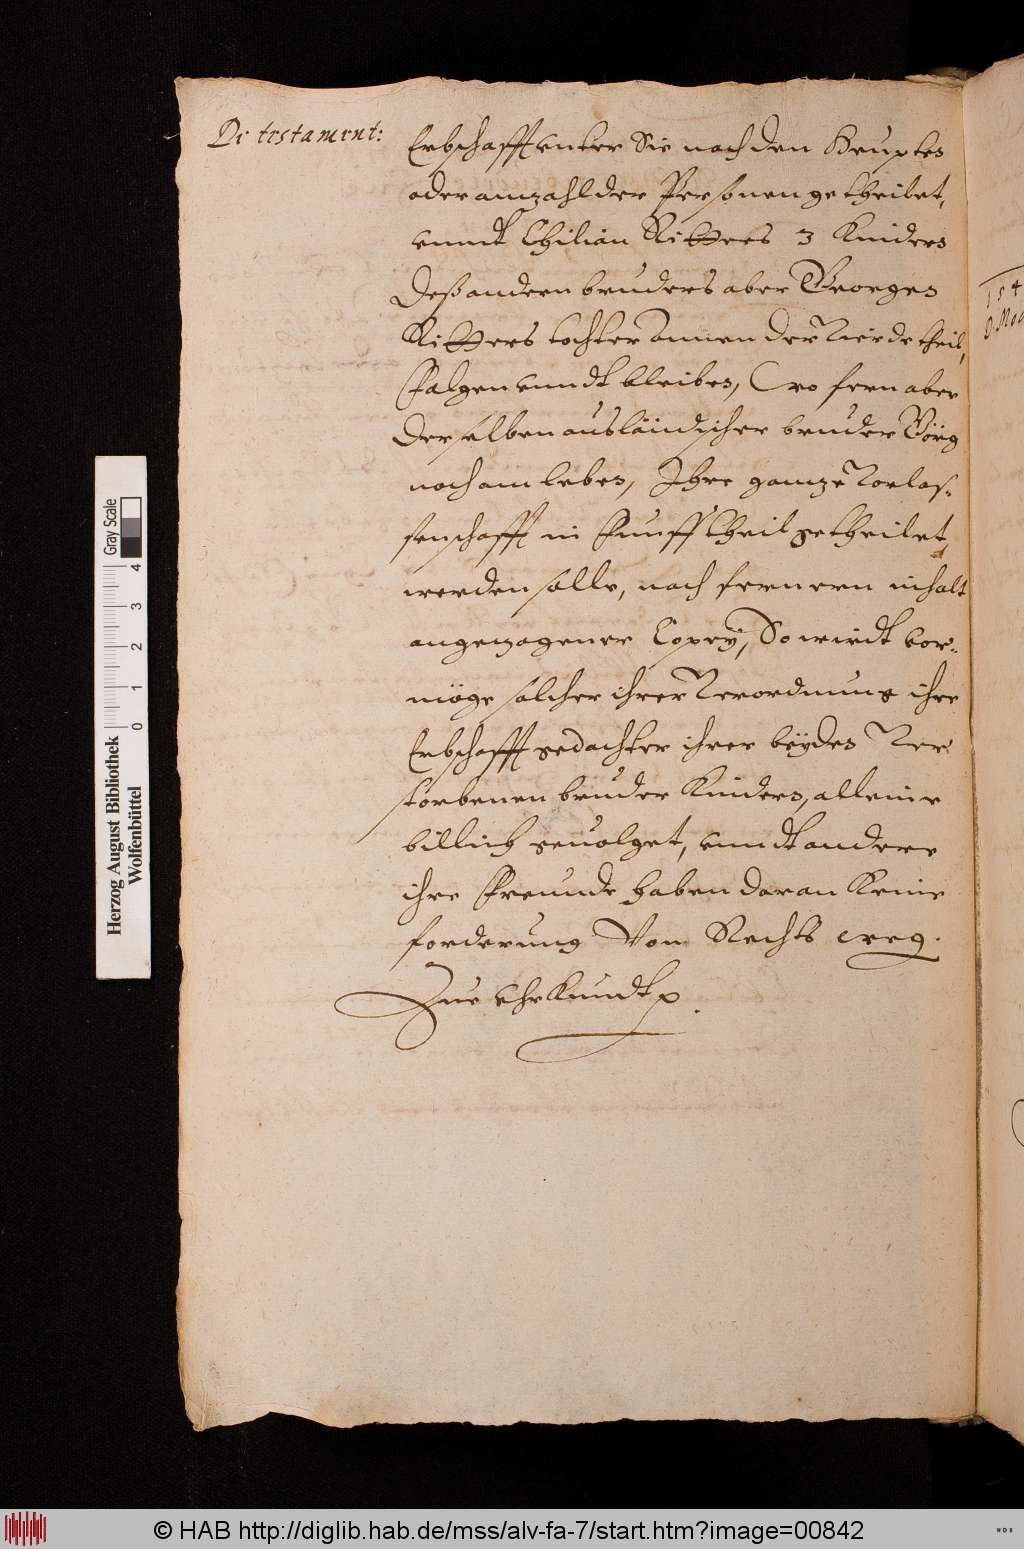 De testament:
Erbschafft vnter Sie nach den Heupten
oder anzahl der Personen getheilet,
vnndt Chilian Ritters 3 Kinders
deß andern bruders aber Georgen
Ritters tochter Annen der Vierde theil,
Folgen vnndt bleiben, Wo fern aber
derselben ausländischer bruder Görg
noch am leben, Ihre gantze Vorlas-
senschafft in Funff theil getheilet,
werden solle, nach fernern inhalt
angezogener Copey, So wirdt vor-
möge solcher ihrer Verordnung ihre
Erbschafft gedachter ihrer beyden Ver
storbenen bruder Kindern, alleine
billich geuolget, vnndt andere
ihre Freunde haben daran Keine
forderung Von Rechts weg.
Zue vhrkundt p.
154
Herzog August Bibliothek
Wolfenbüttel
0 1 2 3 4
Gray Scale
© HAB http://diglib.hab.de/mss/alv-fa-7/start.htm?image=00842